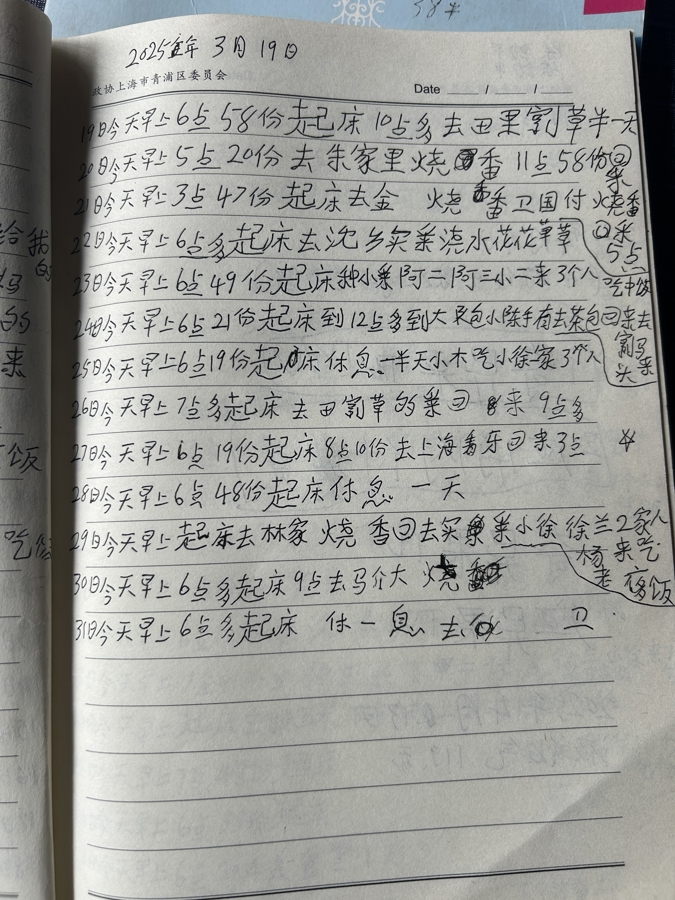 38半
2025年 3月 19日
政协上海市青浦区委员会
Date / /
19日今天早上6点58份起床10点多去田里割草半一天
20日今天早上5点20份去朱家里烧香 11点58份回来
21日今天早上3点47份起床去金 烧香卫国付烧香回来5点
22日今天早上6点多起床去沈乡买菜浇水花花草草
23日今天早上6点49份起床种小菜阿二阿三小二来3个人吃中饭
24日今天早上6点21份起床到12点多到大 包小陈手有去茶包回来去
25日今天早上6点19份起床休息一半天小木吃小徐家3个人
26日今天早上7点多起床去田割草的菜回来9点多
27日今天早上6点19份起床8点10份去上海看牙回来3点
28日今天早上6点48份起床休息 一天
29日今天早上起床去林家烧香回去买菜小徐徐兰2家人杨老来吃夜饭
30日今天早上6点多起床9点去马个大烧香
31日今天早上6点多起床 休一息 去 卫
给我
的
的
来
饭
吃饭